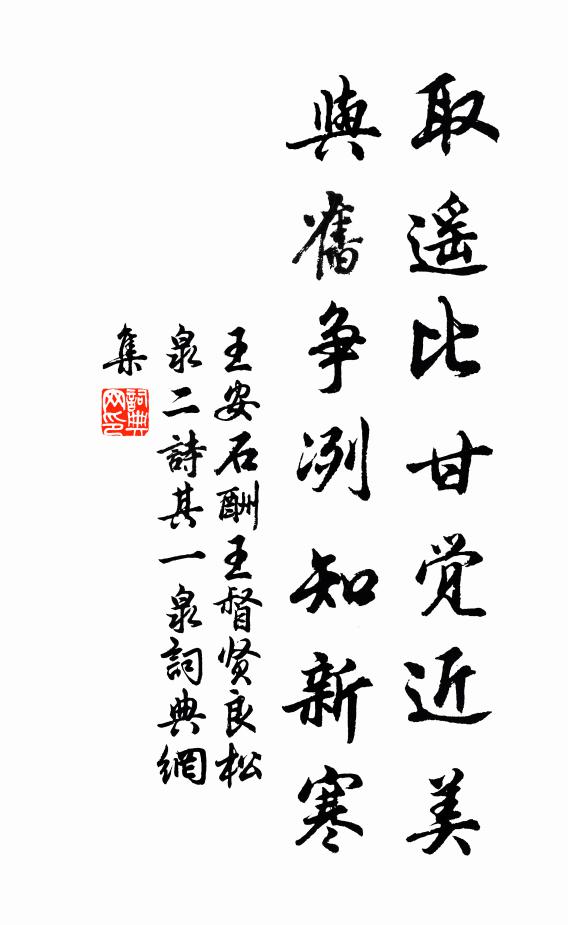 取遥比甘觉近美
與舊争冽知新寒
王安石酬王督贤良松
泉二詩其一泉詞典網
集
詞典
网印